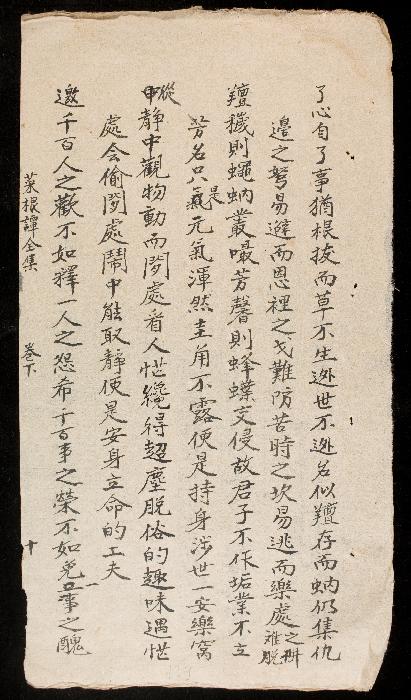 了心自了事猶根拔而草不生逃世不逃名似羶存而蚋仍集仇
邊之弩易避而恩裡之戈難防苦時之坎易逃而樂處之阱難脫
羶穢則蠅蚋叢嘬芳馨則蜂蝶交侵故君子不作垢業不立
芳名只是氣元氣渾然圭角不露便是持身涉世一安樂窩
從静中觀物動而閑處看人忙纔得超塵脫俗的趣味遇忙
處会偷閑處鬧中能取靜便是安身立命的工夫
邀千百人之歡不如釋一人之怨希千百事之榮不如免一事之醜
菜根譚全集 卷下 十